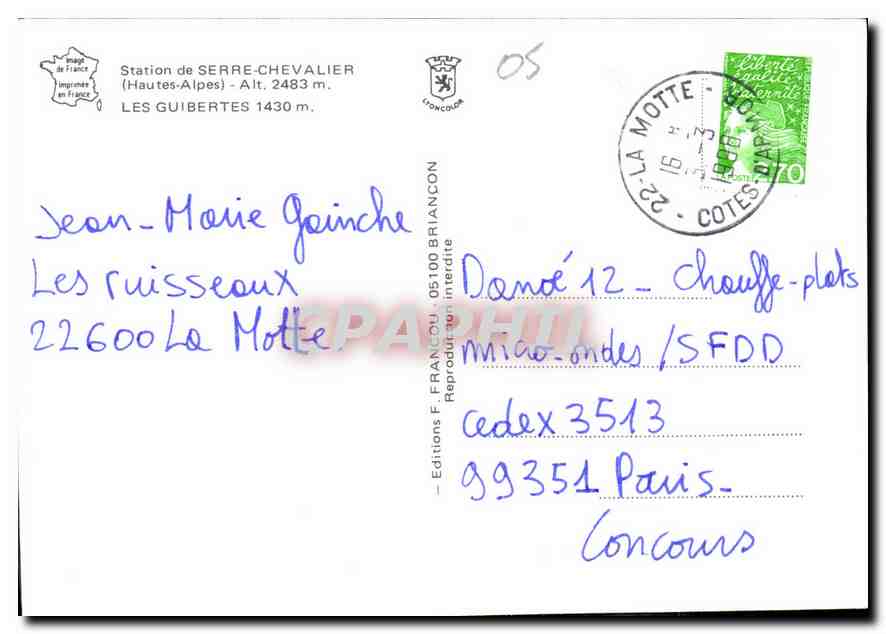 Image
de France
imprimée
en France
Station de SERRE-CHEVALIER
(Hautes-Alpes) - Alt. 2483 m.
LES GUIBERTES 1430 m.
LYONCOLOR
05
liberté
égalité
fraternité
LA POSTE
70
22-LA MOTTE - COTES-D'ARMOR
16
- 3
1998
Jean-Marie Gainche
Les ruisseaux
22600 La Motte.
– Editions F. FRANCOU - 05100 BRIANÇON
Reproduction interdite
Danoé 12 - Chauffe-plats
micro-ondes /SFDD
cedex 3513
99351 Paris-
Concours
CPAPHIL